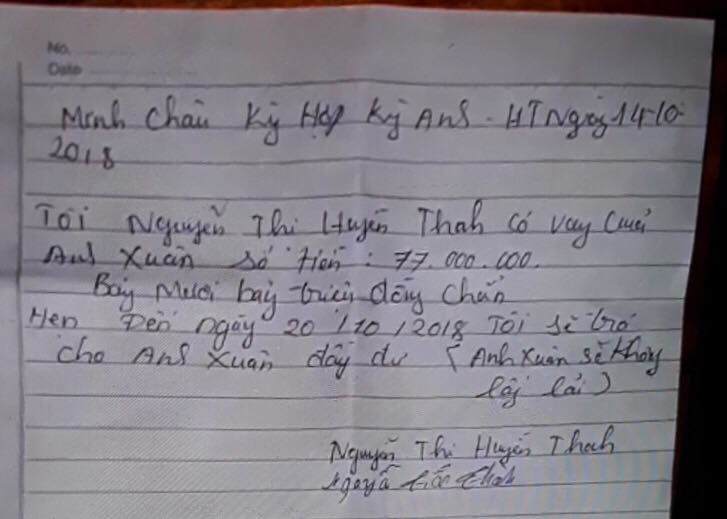 No.
Date
Minh Châu Kỳ Hợp Kỳ Anh - HT Ngày 14-10-
2018
Tôi Nguyễn Thi Huyền Thah có vay Của
Anh Xuân số tiền : 77.000.000.
Bảy Mươi bảy triệu đồng chẵn
Hẹn Đến ngày 20/10/2018 Tôi sẽ trả
cho Anh Xuân đầy đủ (Anh Xuân sẽ không
lấy lãi)
Nguyễn Thi Huyền Thah